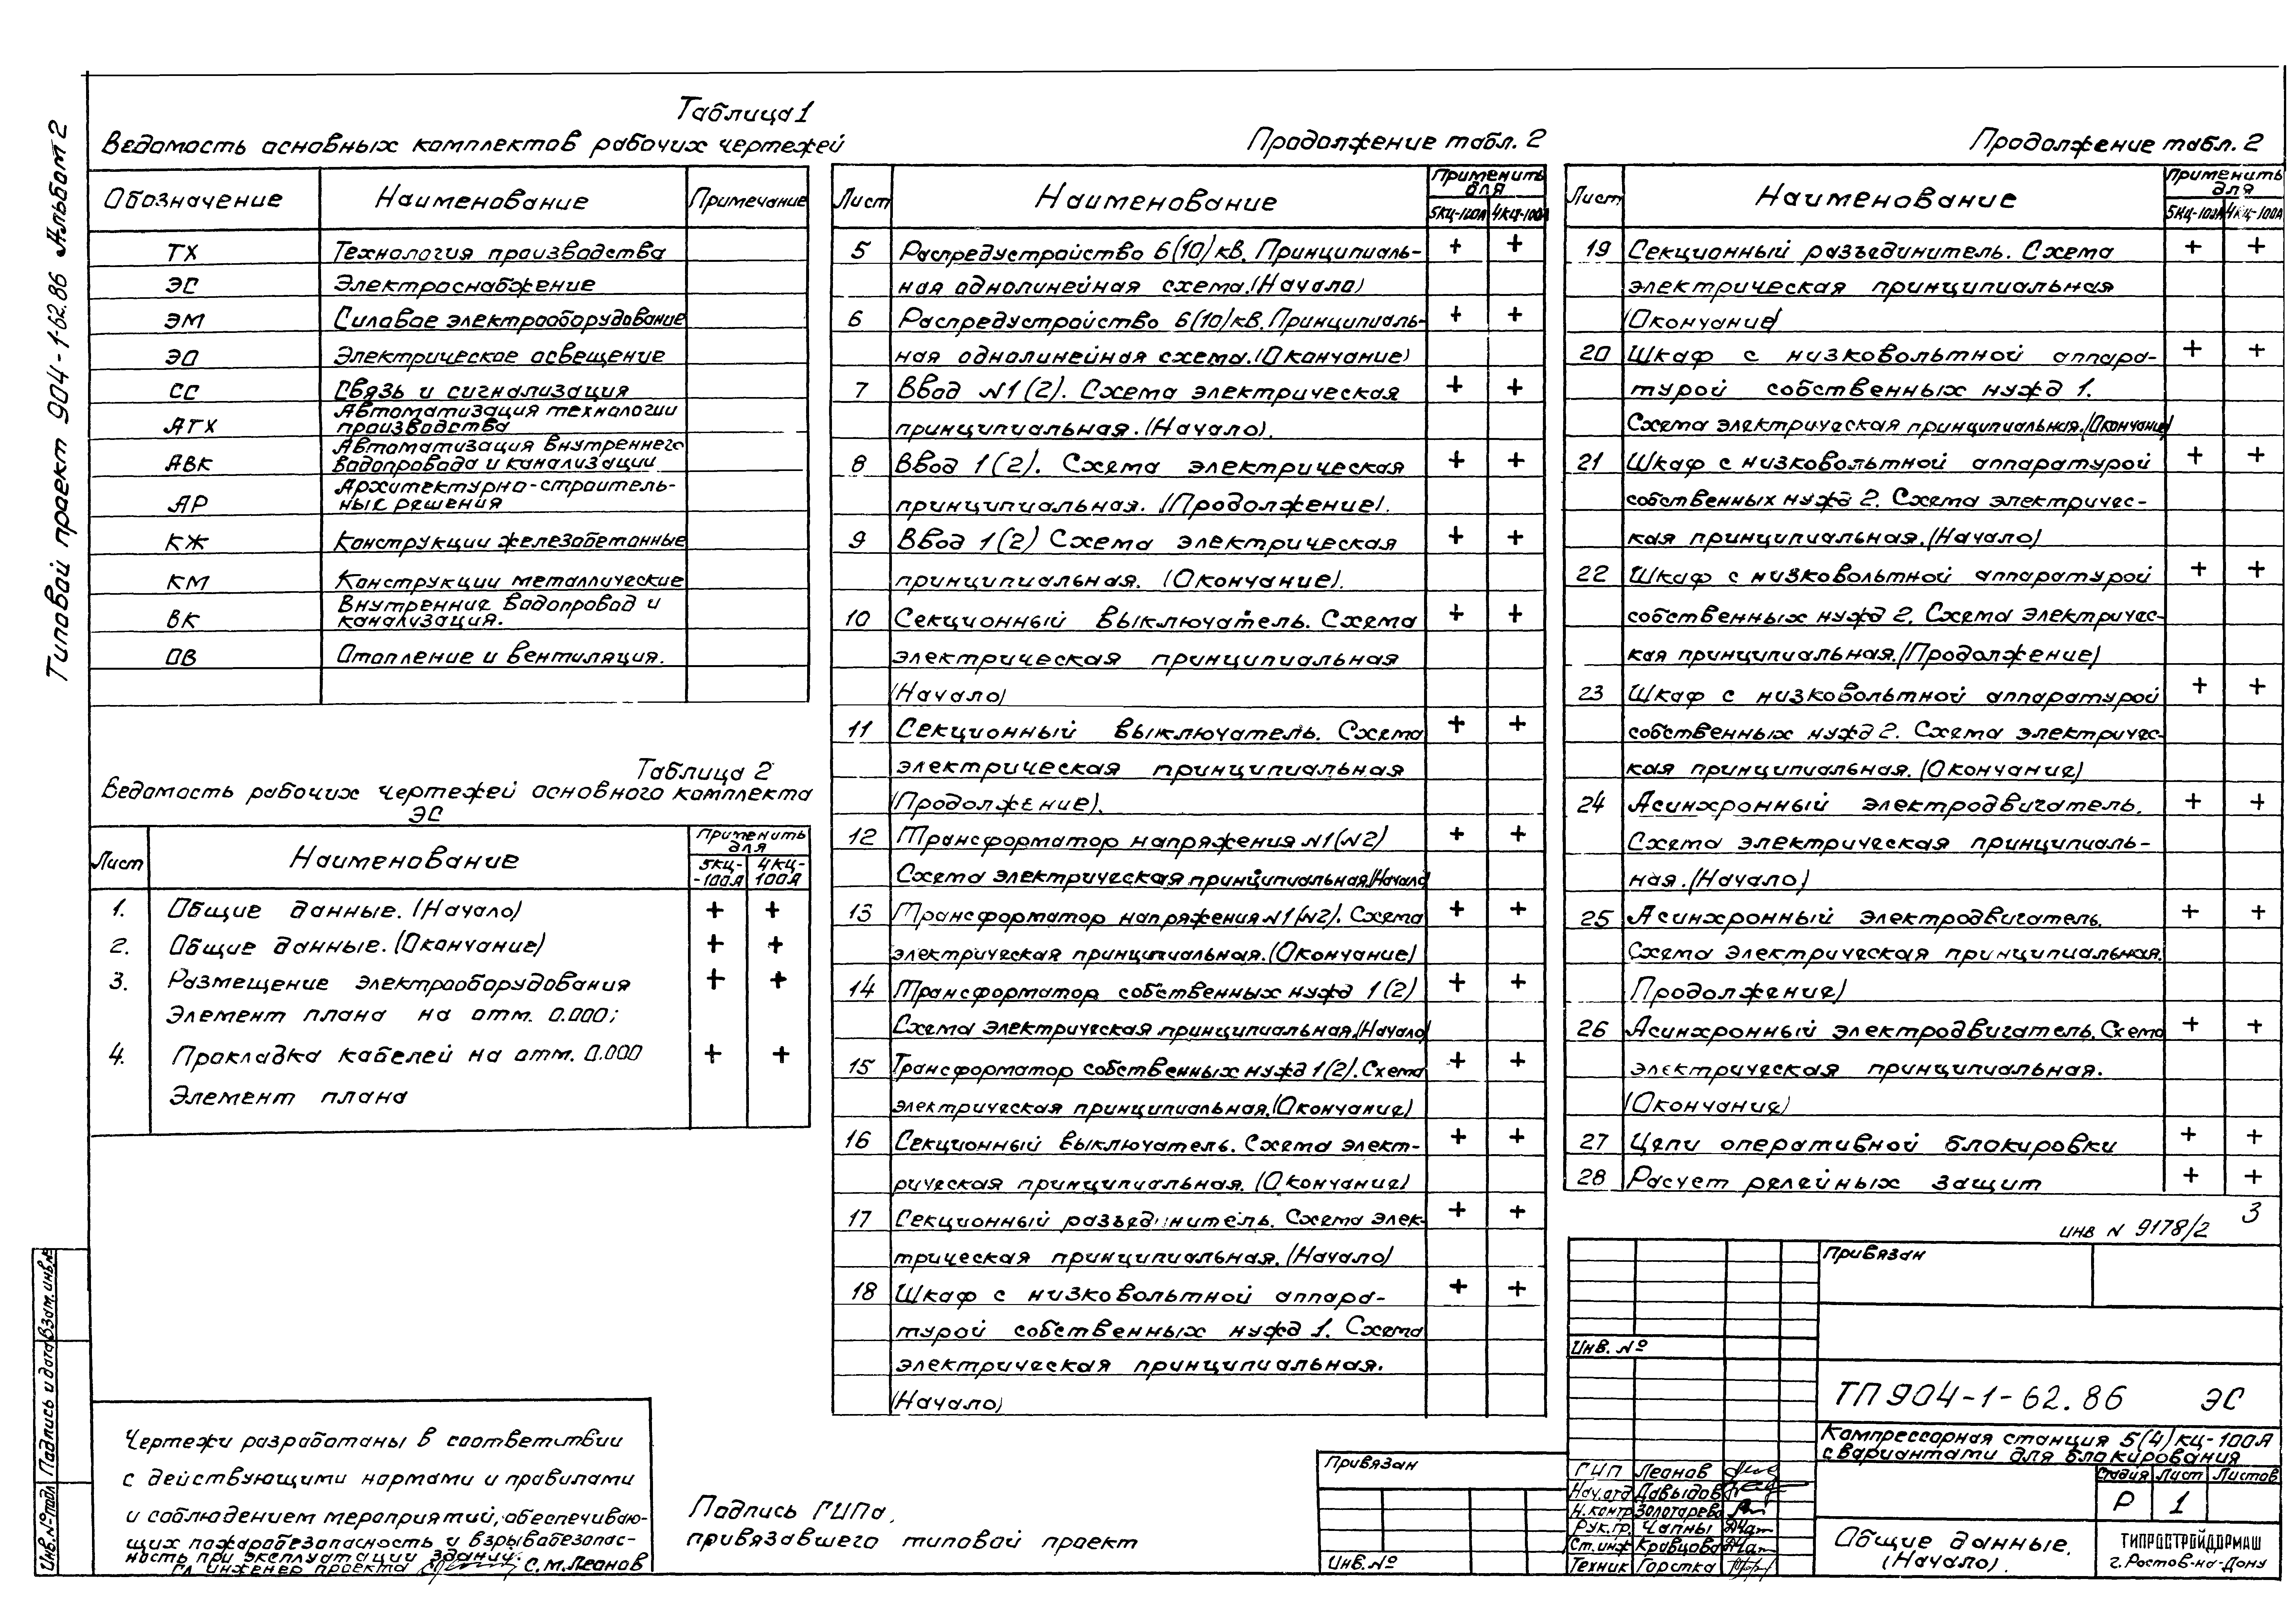 Типовой проект 904-1-62.86 Альбом 2
Таблица 1
Ведомость основных комплектов рабочих чертежей
Обозначение Наименование Примечание
ТХ Технология производства
ЭС Электроснабжение
ЭМ Силовое электрооборудование
ЭО Электрическое освещение
СС Связь и сигнализация
АТХ Автоматизация технологии
производства
АВК Автоматизация внутреннего
водопровода и канализации
АР Архитектурно-строитель-
ные решения
КЖ Конструкции железобетонные
КМ Конструкции металлические
ВК Внутренние водопровод и
канализация.
ОВ Отопление и вентиляция.
Таблица 2
Ведомость рабочих чертежей основного комплекта
ЭС
Лист Наименование Применить
для
5КЦ-
-100А 4КЦ-
100А
1. Общие данные. (Начало) + +
2. Общие данные. (Окончание) + +
3. Размещение электрооборудования + +
Элемент плана на отм. 0.000;
4. Прокладка кабелей на отм. 0.000 + +
Элемент плана
Продолжение табл. 2
Лист Наименование Применить
для
5КЦ-100А 4КЦ-100А
5 Распредустройство 6(10)кв. Принципиаль- + +
ная однолинейная схема.(Начало)
6 Распредустройство 6(10)кв. Принципиаль- + +
ная однолинейная схема.(Окончание)
7 Ввод N1(2). Схема электрическая + +
принципиальная.(Начало).
8 Ввод 1(2). Схема электрическая + +
принципиальная. (Продолжение).
9 Ввод 1(2) Схема электрическая + +
принципиальная. (Окончание).
10 Секционный выключатель. Схема + +
электрическая принципиальная
(Начало)
11 Секционный выключатель. Схема + +
электрическая принципиальная
(Продолжение).
12 Трансформатор напряжения N1(N2) + +
Схема электрическая принципиальная.(Начало)
13 Трансформатор напряжения N1(N2). Схема + +
электрическая принципиальная.(Окончание)
14 Трансформатор собственных нужд 1(2) + +
Схема электрическая принципиальная.(Начало)
15 Трансформатор собственных нужд 1(2). Схема + +
электрическая принципиальная.(Окончание)
16 Секционный выключатель. Схема элект- + +
рическая принципиальная. (Окончание)
17 Секционный разъединитель. Схема элек- + +
трическая принципиальная. (Начало)
18 Шкаф с низковольтной аппара- + +
турой собственных нужд 1. Схема
электрическая принципиальная.
(Начало)
Продолжение табл. 2
Лист Наименование Применить
для
5КЦ-100А 4КЦ-100А
19 Секционный разъединитель. Схема + +
электрическая принципиальная
(Окончание)
20 Шкаф с низковольтной аппара- + +
турой собственных нужд 1.
Схема электрическая принципиальная.(Окончание)
21 Шкаф с низковольтной аппаратурой + +
собственных нужд 2. Схема электричес-
кая принципиальная.(Начало)
22 Шкаф с низковольтной аппаратурой + +
собственных нужд 2. Схема электричес-
кая принципиальная.(Продолжение)
23 Шкаф с низковольтной аппаратурой + +
собственных нужд 2. Схема электричес-
кая принципиальная. (Окончание)
24 Асинхронный электродвигатель. + +
Схема электрическая принципиаль-
ная.(Начало)
25 Асинхронный электродвигатель. + +
Схема электрическая принципиальная.
Продолжение)
26 Асинхронный электродвигатель. Схема + +
электрическая принципиальная.
(Окончание)
27 Цепи оперативной блокировки + +
28 Расчет релейных защит + +
3
инв N 9178/2
Привязан
Инв. №
ТП 904-1-62.86 ЭС
Компрессорная станция 5(4)кц-100А
с вариантами для блокирования
Стадия Лист Листов
Р 1
Общие данные.
(Начало).
ГИПРОСТРОЙДОРМАШ
г.Ростов-на-Дону
ГИП Леонов
Нач.отд Давыдов
Н.контр Золотарева
Рук.гр. Чапны
Ст.инж Кравцова
Техник Горстка
Привязан
Инв.№
Подпись ГИПа,
привязавшего типовой проект
Чертежи разработаны в соответствии
с действующими нормами и правилами
и соблюдением мероприятий, обеспечиваю-
щих пожаробезопасность и взрывобезопас-
ность при эксплуатации зданий.
Гл инженер проекта С.М.Леонов
Взам.инв.№
Подпись и дата
Инв.№подл